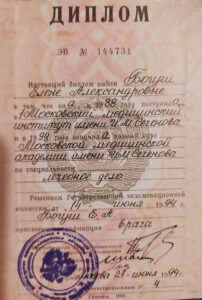 ДИПЛОМ
ЭВ № 144731
Настоящий диплом выдан Богуш
Елене Александровне
в том, что она в 1988 году поступила
в 1 Московский медицинский
институт имени И.М. Сеченова
и в 1994 году окончила полный курс
Московской медицинской
академии имени И.М. Сеченова
по специальности
лечебное дело
Решением Государственной экзаменационной
комиссии от 14 июня 1994 г.
Богуш Е. А.
врача
Москва 27 июня 1994 г.